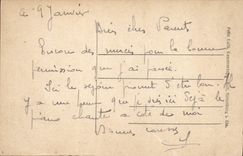 ce 9 Janvier
Très chers Parents
Encore des mercis pour la bonne
permission que j'ai passé.
Ici le séjour promet d'être bon. Il
y a une heure que je suis ici déjà le
piano chante à côté de moi
Bonnes caresses